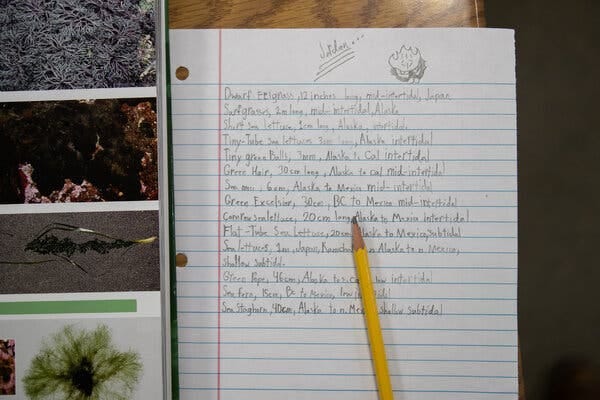 Jordan...
Dwarf Eelgrass, 12 inches long, mid-intertidal, Japan
Surfgrasses, 2m long, mid-intertidal, Alaska
Sea lettuce, 1cm long, Alaska, intertidal
Tiny-Tube Sea lettuces 3cm long, Alaska intertidal
Tiny green Balls, 3mm, Alaska to Cal intertidal
Green Hair, 30cm long, Alaska to cal mid-intertidal
Sea, 6cm, Alaska to Mexico mid-intertidal
Green Excelsior, 30cm, BC to Mexico mid-intertidal
sea lettuce, 20cm long, Alaska to Mexico intertidal
Flat-Tube Sea Lettuce, 20cm, Alaska to Mexico, Subtidal
Sea lettuces, 1m, Japan, Alaska to n. Mexico,
Shallow Subtidal
Green Rope, 46cm, Alaska to low intertidal
Sea Fern, 15cm, BC to Mexico,
Sea Staghorn, 40cm, Alaska to n. Mexico shallow subtidal